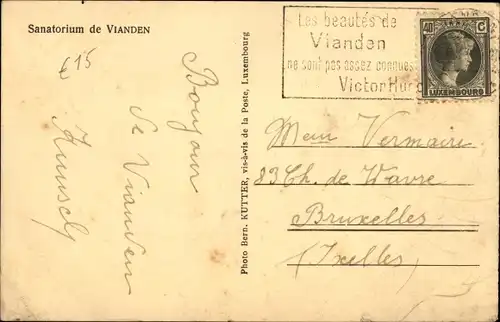 Sanatorium de VIANDEN
615
Bonjour
de Vianden
Photo Bern. KUTTER, vis-à-vis de la Poste, Luxembourg
Les beautés de
Vianden
ne sont pas assez connues
Victor Hugo
40 C
LUXEMBOURG
Vermaire
83 Ch. de Wavre
Bruxelles
(Ixelles)